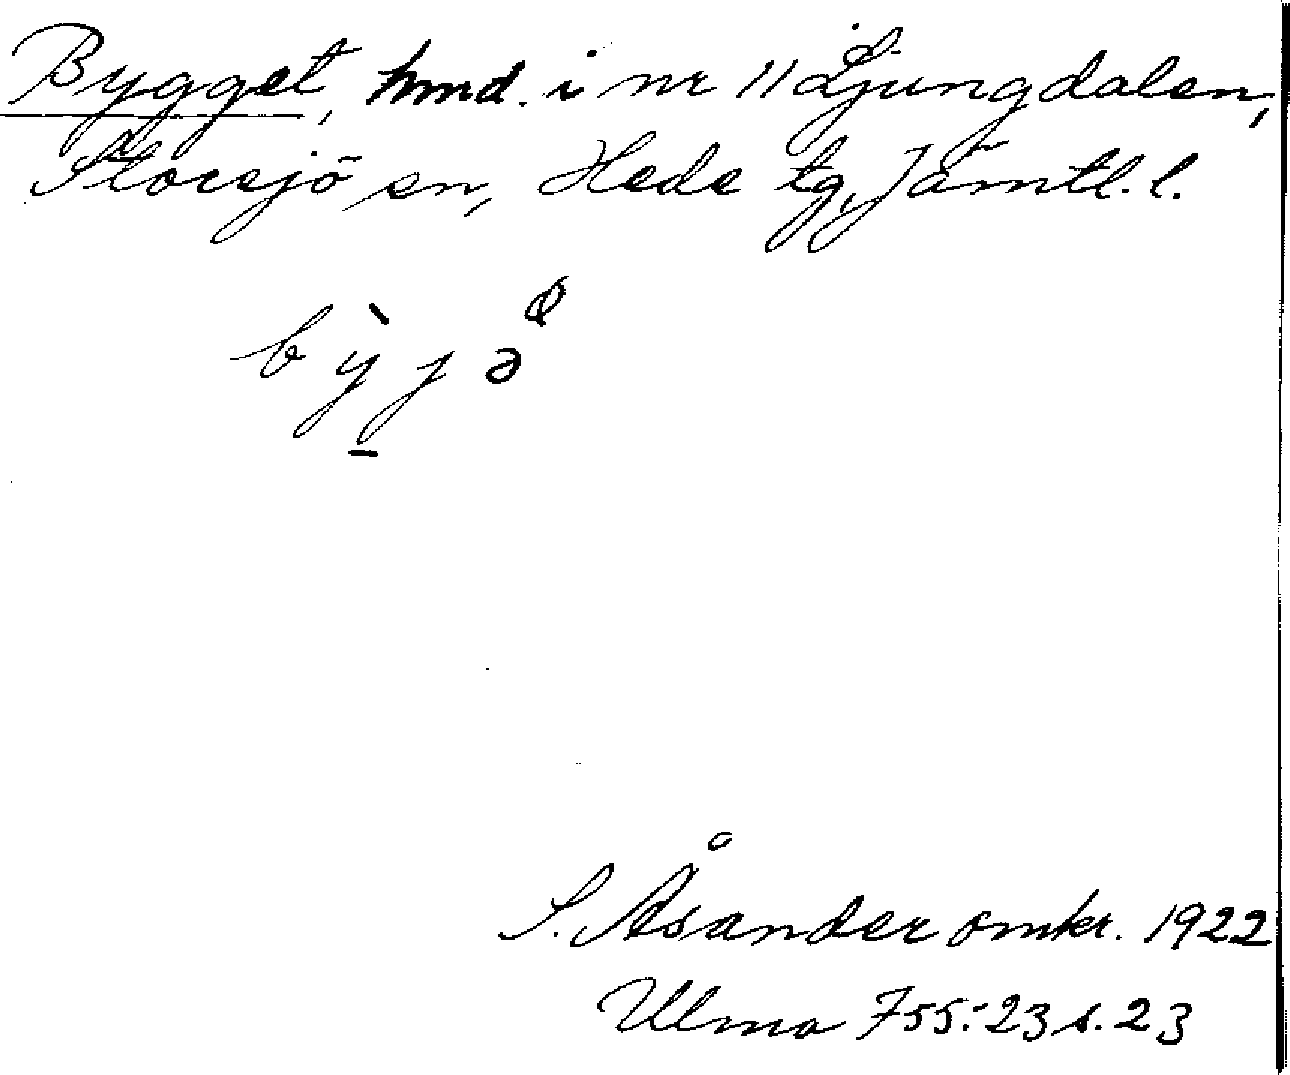 Bygget, hmd. i nr 11 Ljungdalen,
Storsjö sn, Hede tg, Jämtl. l.
bỳjə
S. Åsander omkr. 1922
Ulma 755:23 s. 23